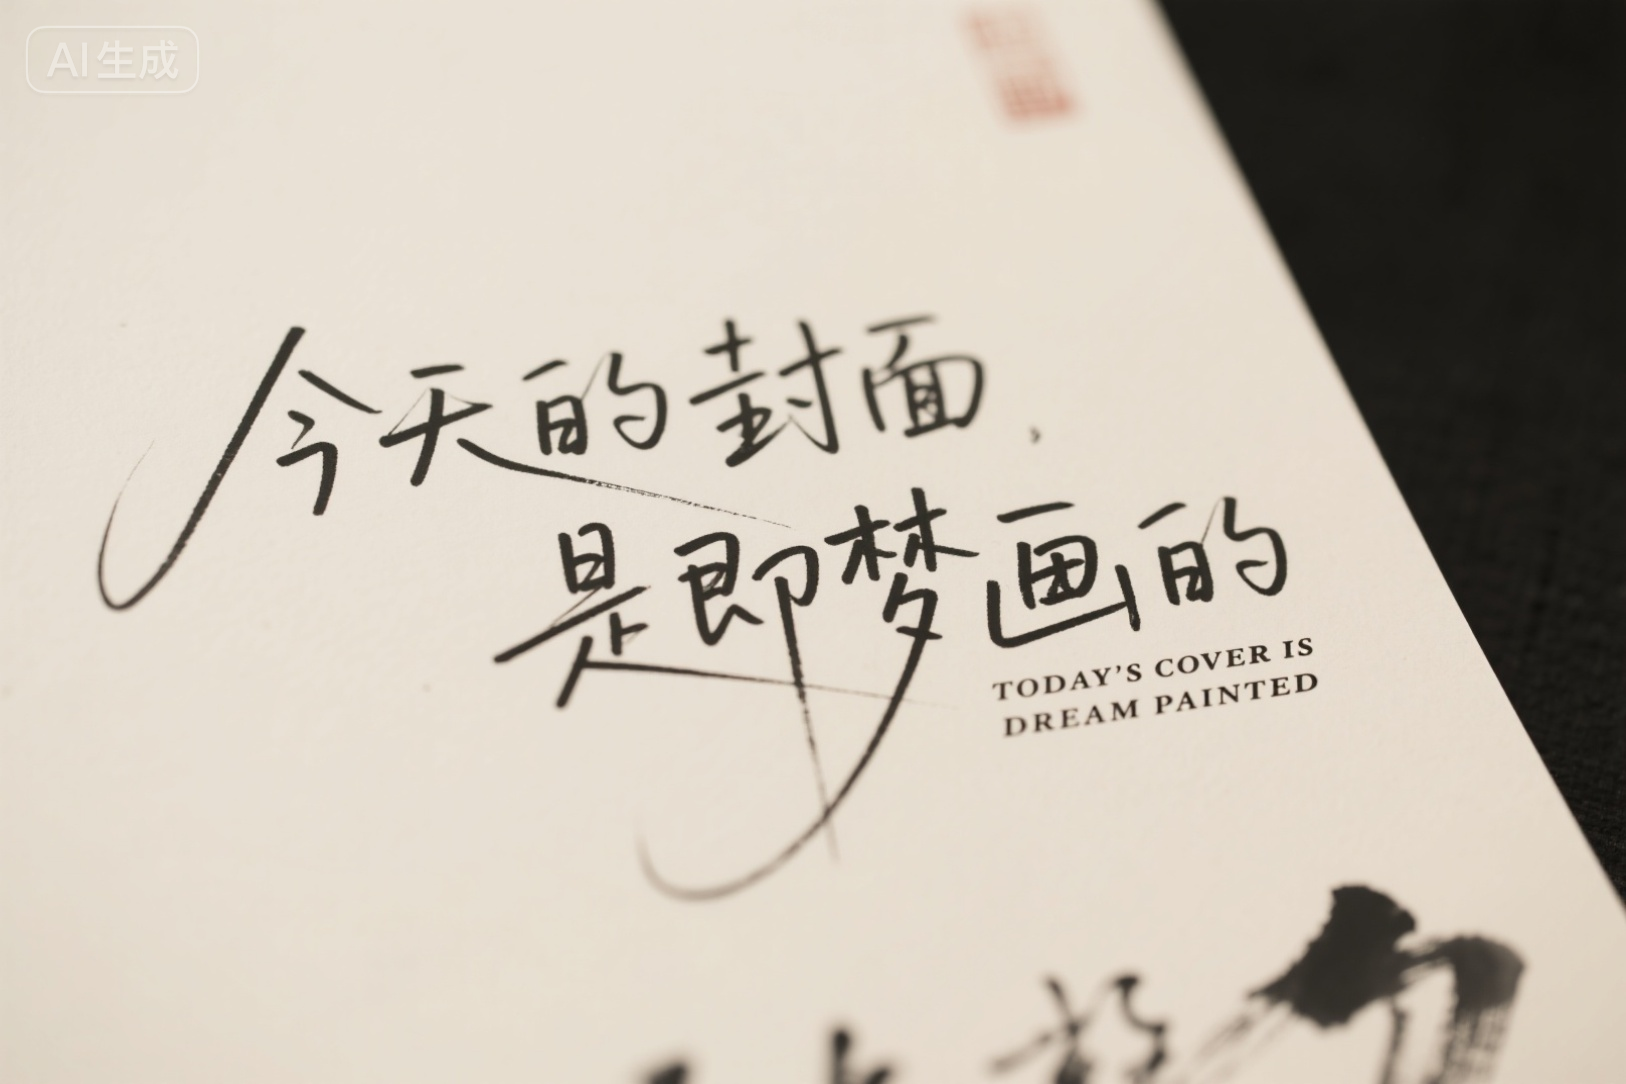 AI生成
今天的封面,
是即梦画的
TODAY'S COVER IS
DREAM PAINTED